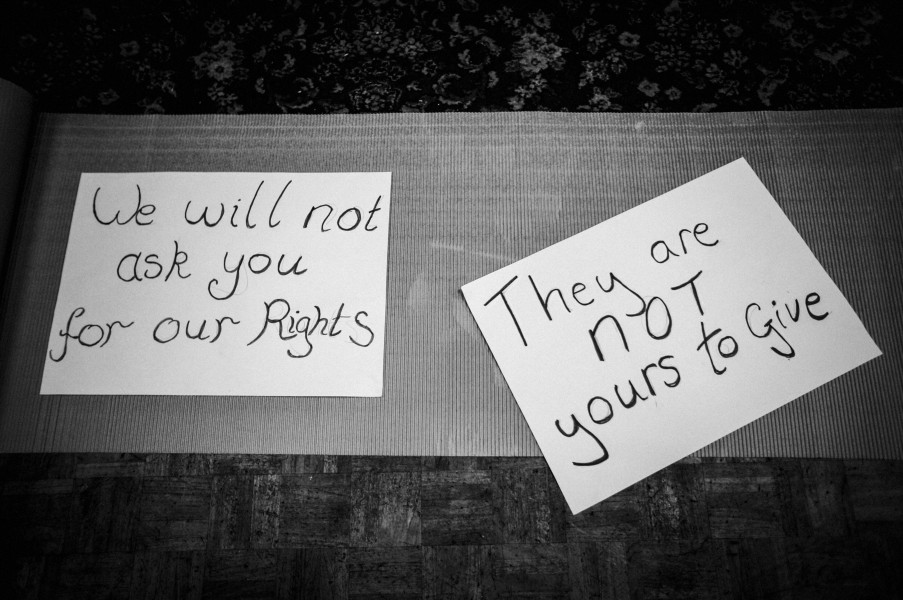 We will not
ask you
for our Rights
They are
nOT
yours to Give